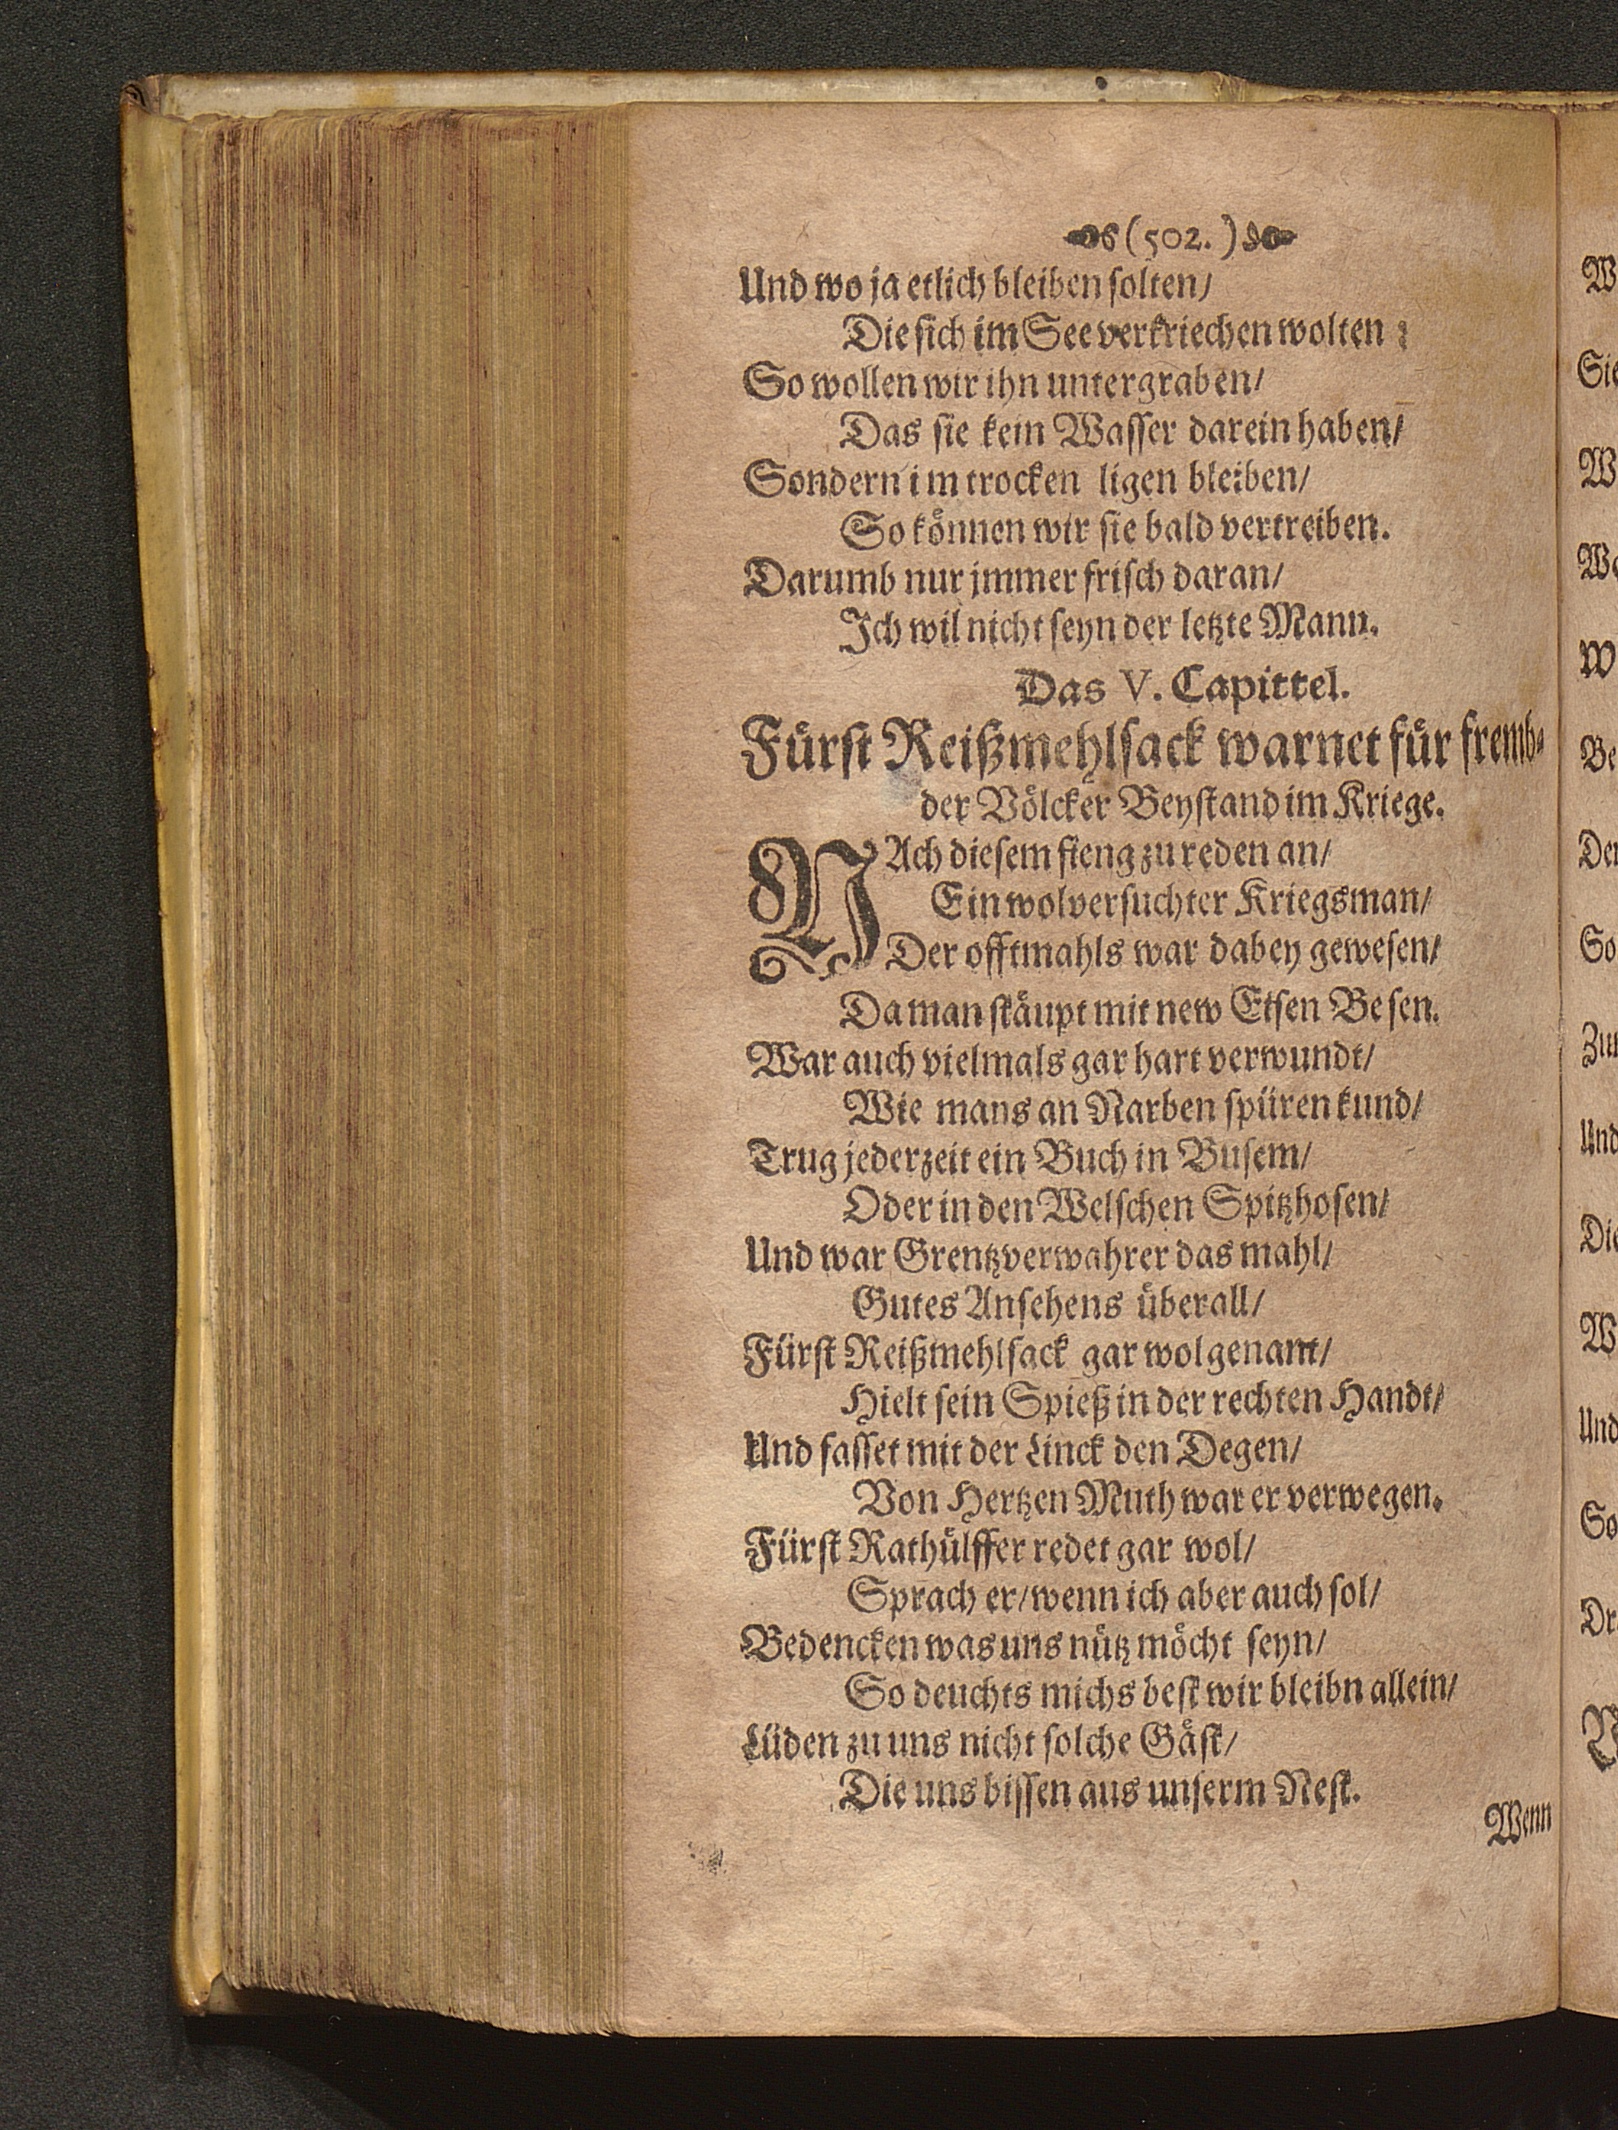 (502.)
Und wo ja etlich bleiben solten/
Die sich im See verkriechen wolten:
So wollen wir ihn untergraben/
Das sie kein Wasser darein haben/
Sondern im trocken ligen bleiben/
So können wir sie bald vertreiben.
Darumb nur jmmer frisch daran/
Ich wil nicht seyn der letzte Mann.
Das V. Capittel.
Fürst Reißmehlsack warnet für fremb-
der Völcker Beystand im Kriege.
NAch diesem fieng zu reden an/
Ein wolversuchter Kriegsman/
Der offtmahls war dabey gewesen/
Da man stäupt mit new Eisen Besen.
War auch vielmals gar hart verwundt/
Wie mans an Narben spüren kund/
Trug jederzeit ein Buch in Busem/
Oder in den Welschen Spitzhosen/
Und war Grentzverwahrer das mahl/
Gutes Ansehens überall/
Fürst Reißmehlsack gar wol genamt/
Hielt sein Spieß in der rechten Handt/
Und fasset mit der Linck den Degen/
Von Hertzen Muth war er verwegen.
Fürst Rathülffer redet gar wol/
Sprach er/ wenn ich aber auch sol/
Bedencken was uns nütz möcht seyn/
So deuchts michs best wir bleibn allein/
Lüden zu uns nicht solche Gäst/
Die uns bissen aus unserm Nest.
Wenn